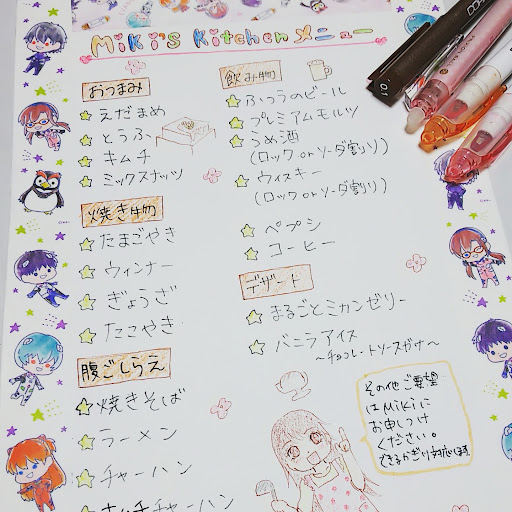 Miki's Kitchen メニュー
おつまみ
えだまめ
とうふ
キムチ
ミックスナッツ
焼き物
たまごやき
ウィンナー
ぎょうざ
たこやき
腹ごしらえ
焼きそば
ラーメン
チャーハン
キムチチャーハン
飲み物
ふつうのビール
プレミアムモルツ
うめ酒
(ロック or ソーダ割り)
ウィスキー
(ロック or ソーダ割り)
ペプシ
コーヒー
デザート
まるごとミカンゼリー
バニラアイス
~チョコレートソースがけ~
その他ご要望
はMikiに
お申しつけ
ください。
できるかぎり対応します
0.1